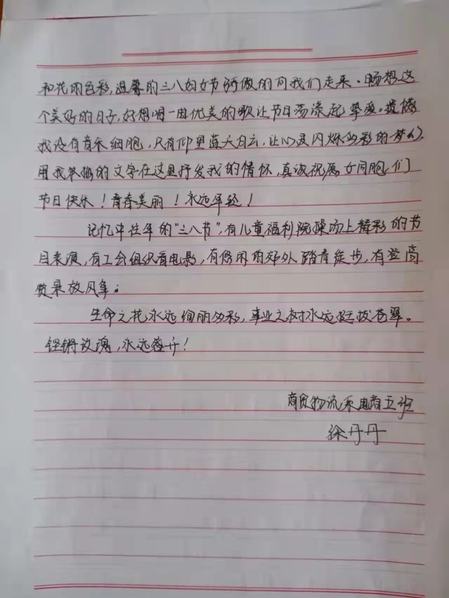 和花雨色彩,温馨的三八妇女节 的向我们走来。畅想这
个美好的日子,好想唱一曲优美的歌让节日荡漾起挚爱。遗憾
我没有音乐细胞,只有仰望蓝天白云,让心灵闪烁多彩的梦幻,
用我 的文字在这里抒发我的情怀,真诚祝愿女同胞们
节日快乐!青春美丽!永远年轻!
记忆中往年的"三八节",有儿童福利院操场上精彩的节
目表演,有工会组织看电影,有悠闲的郊外踏青徒步,有登高
赏景放风筝。
生命之花永远绚丽多彩,事业之树永远挺拔苍翠。
铿锵玫瑰,永远盛开!
商贸物流系电商五班
徐丹丹